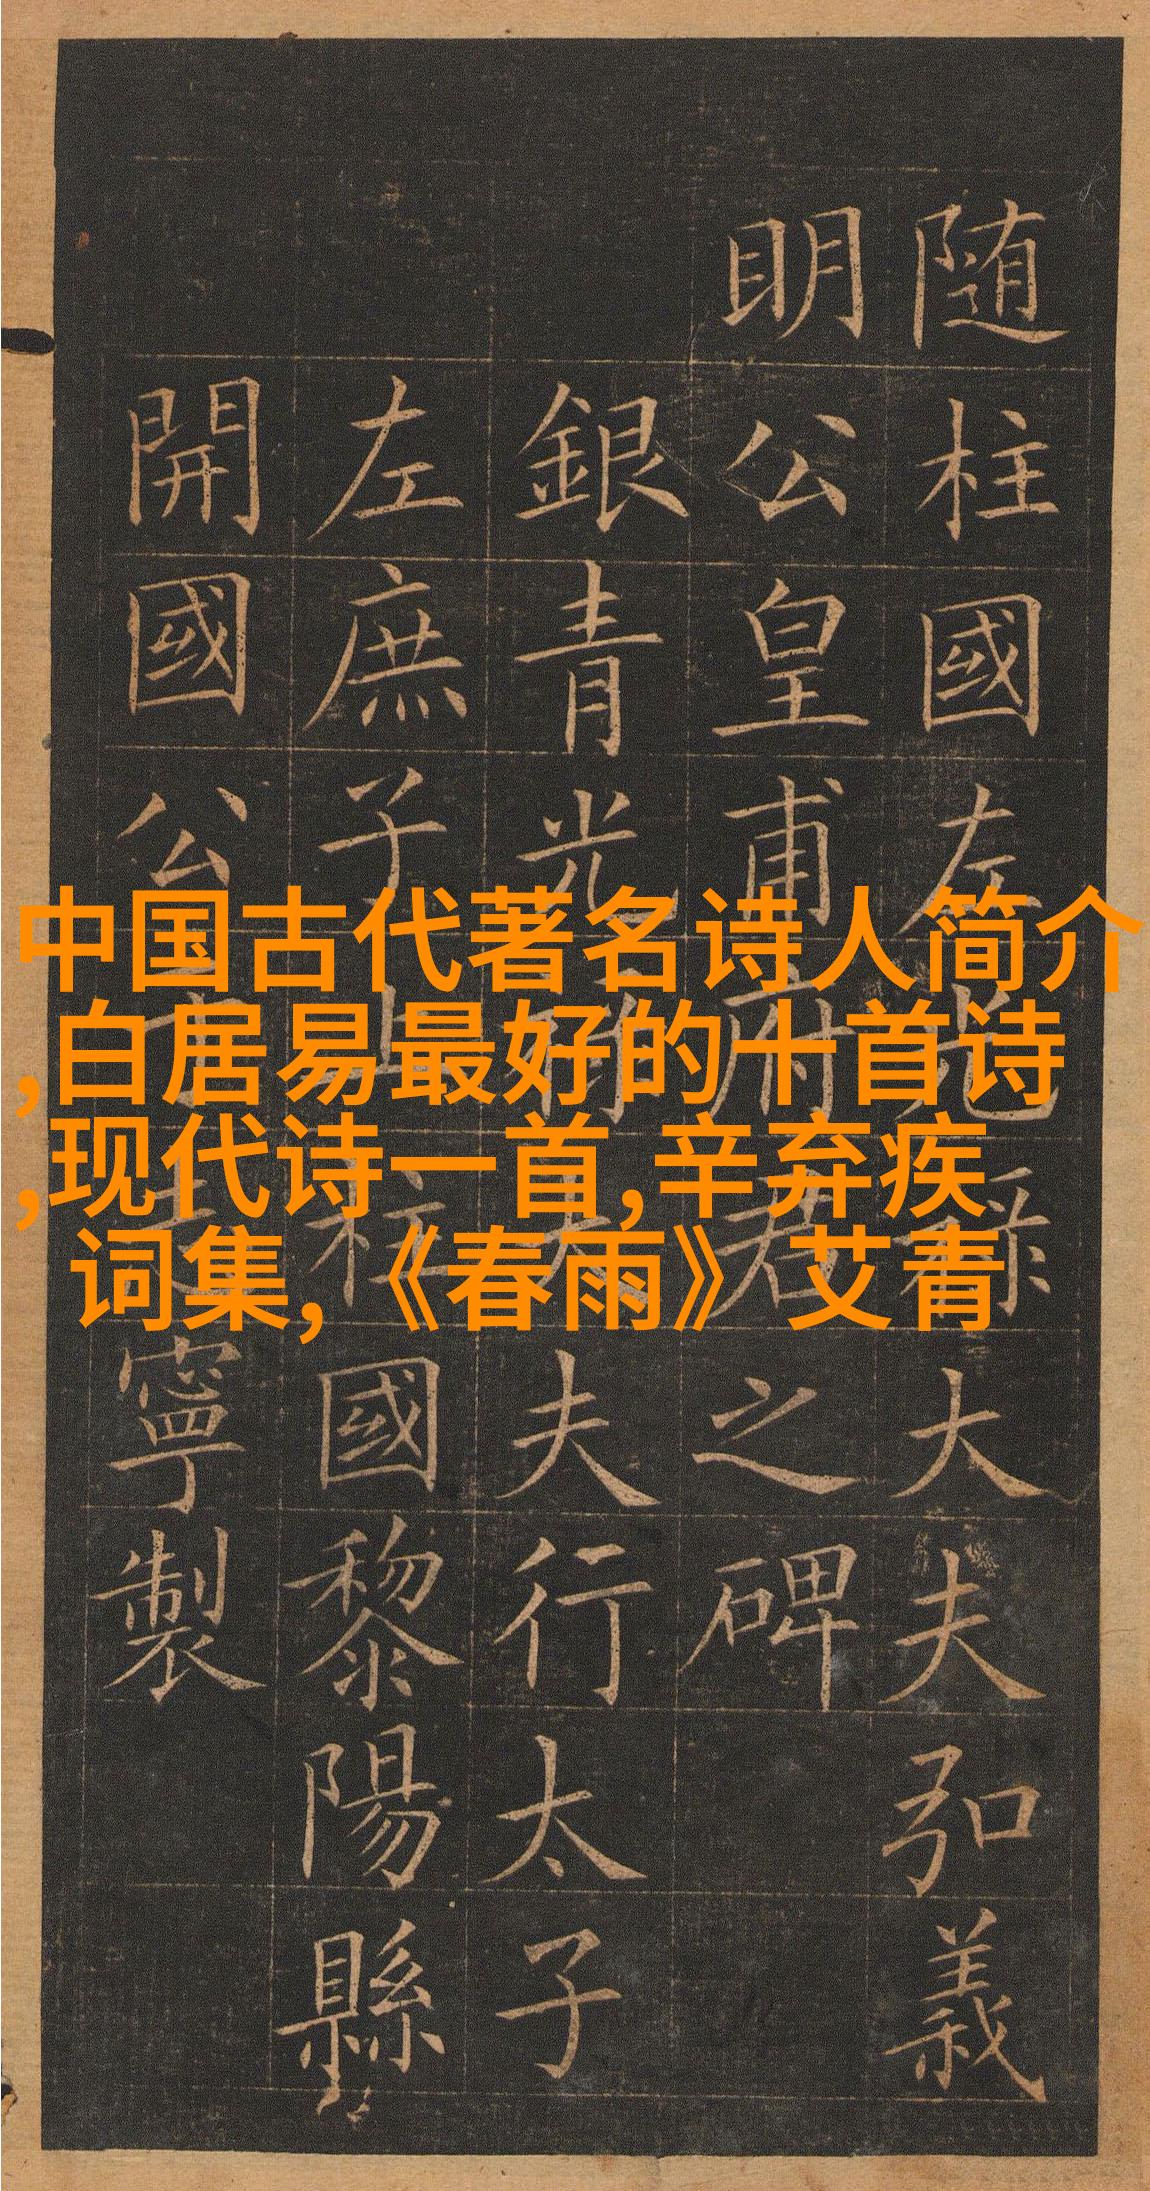 中国古代著名诗人简介
,白居易最好的十首诗
,现代诗一首,辛弃疾
词集,《春雨》艾青
随柱國左光祿大夫弘義
明公皇甫府君之碑
銀青光祿大夫行太子
左庶子上柱國黎陽縣
開國公寧製